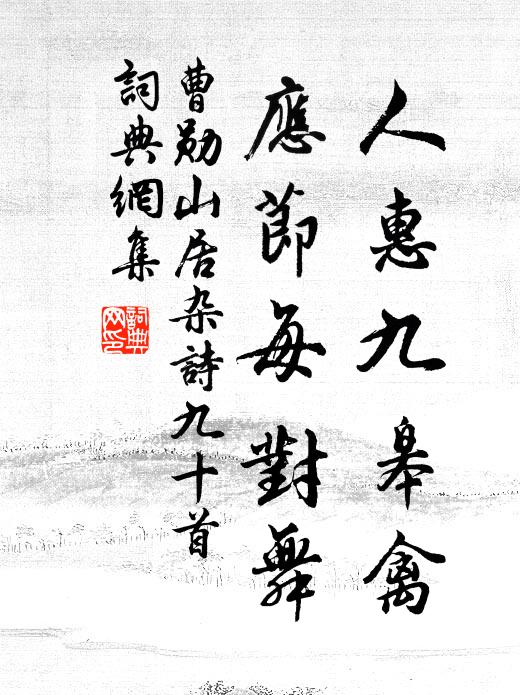 人惠九皋禽
應節每對舞
曹勛山居杂詩九十首
詞典網集
詞典網印